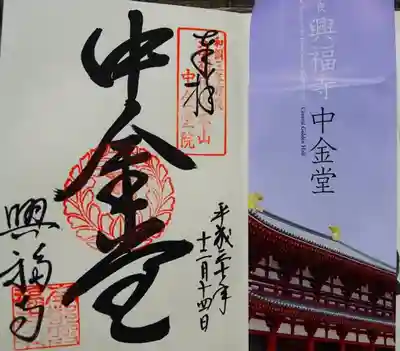 奉拝
中金堂
平成三十年
十二月十四日
興福寺
興福寺
中金堂
Central Golden Hall